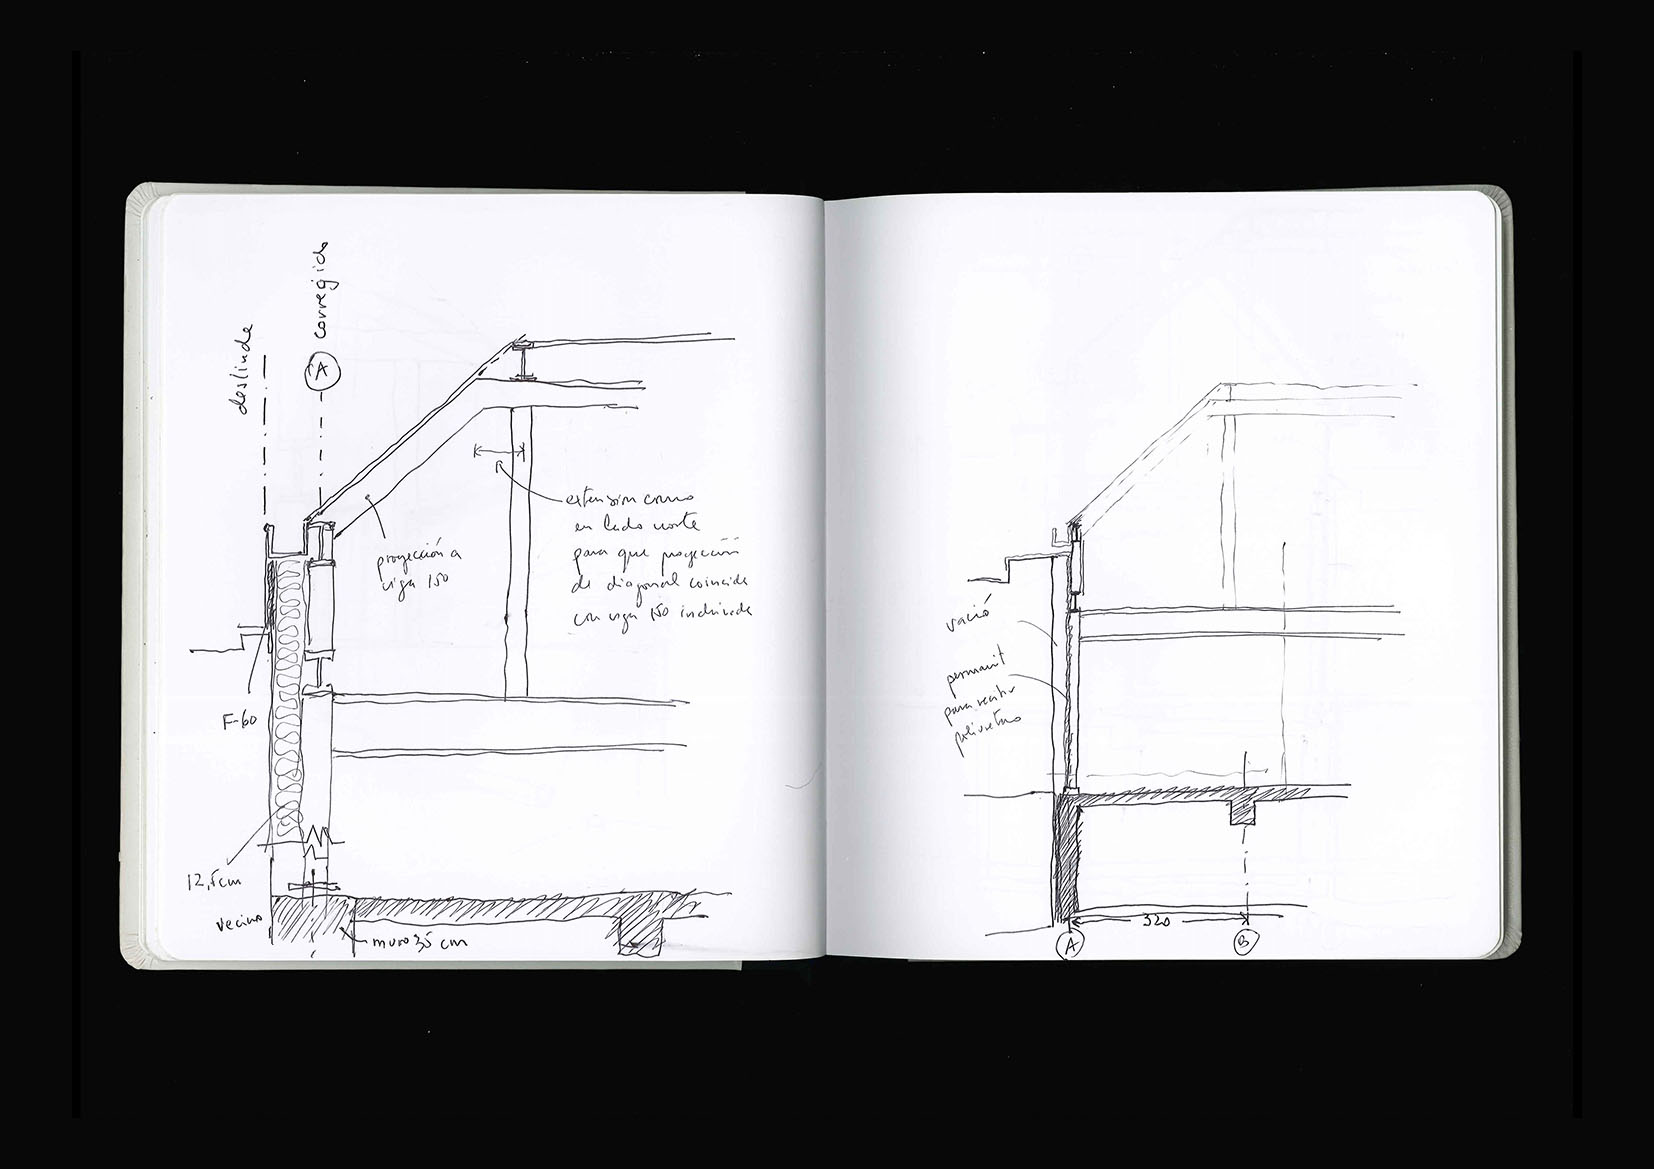 deslinde
A corregido
proyección a
viga 150
extensión como
en lado norte
para que proyección
de diagonal coincida
con viga 150 inclinada
F-60
12,5cm
vecino
muro 35 cm
vació
permanit
para recibir
poliuretano
320
A
B